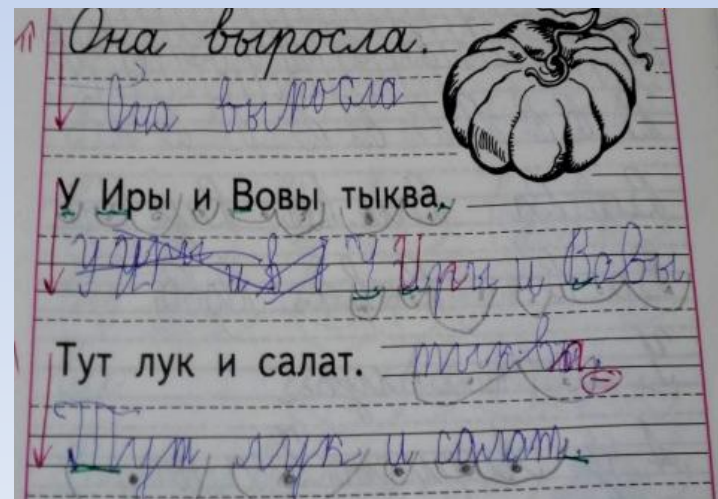 Она выросла.
Она выросла
У Иры и Вовы тыква.
У Иры и В У Иры и Вовы
Тут лук и салат. тыква.
Тут лук и салат.